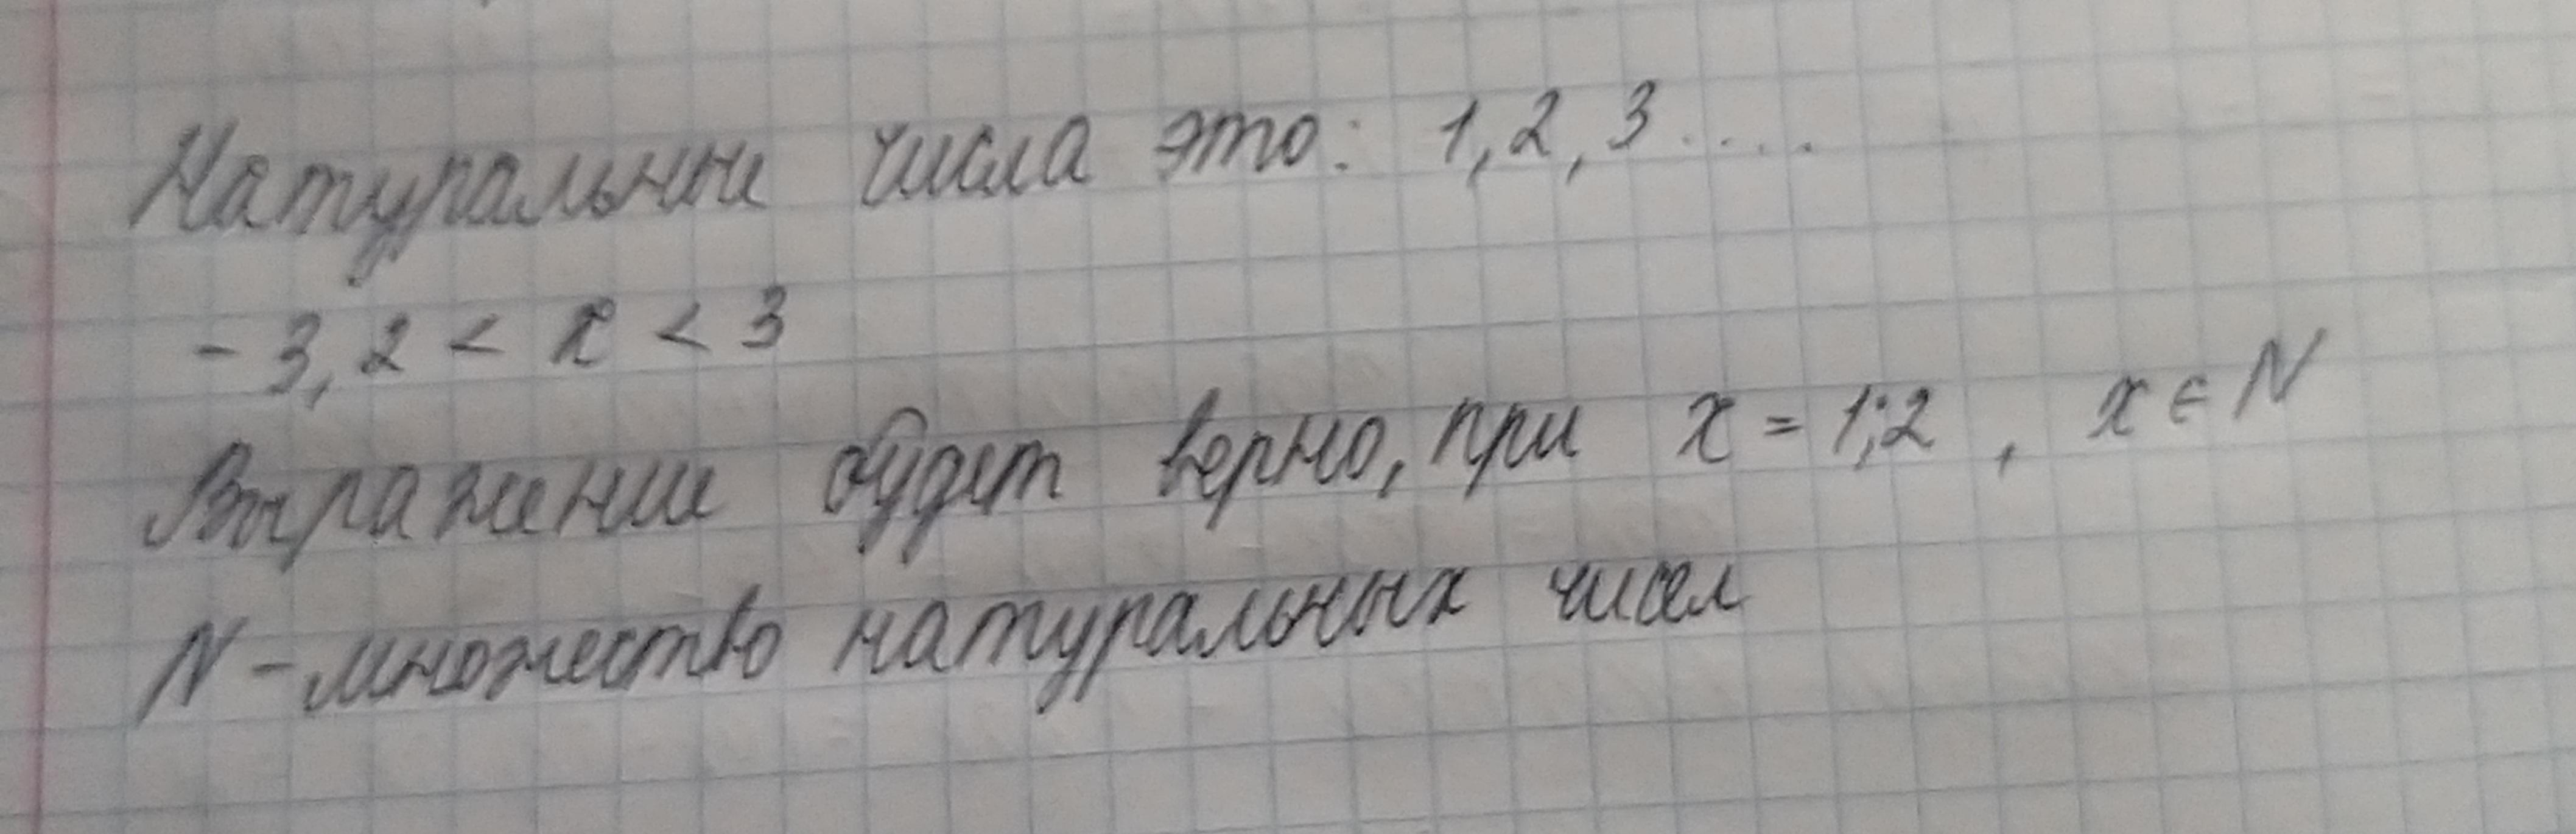 Натуральные числа это: 1, 2, 3....
-3,2 < x < 3
Выражение будет верно, при x = 1;2 , x ∈ N
N - множество натуральных чисел